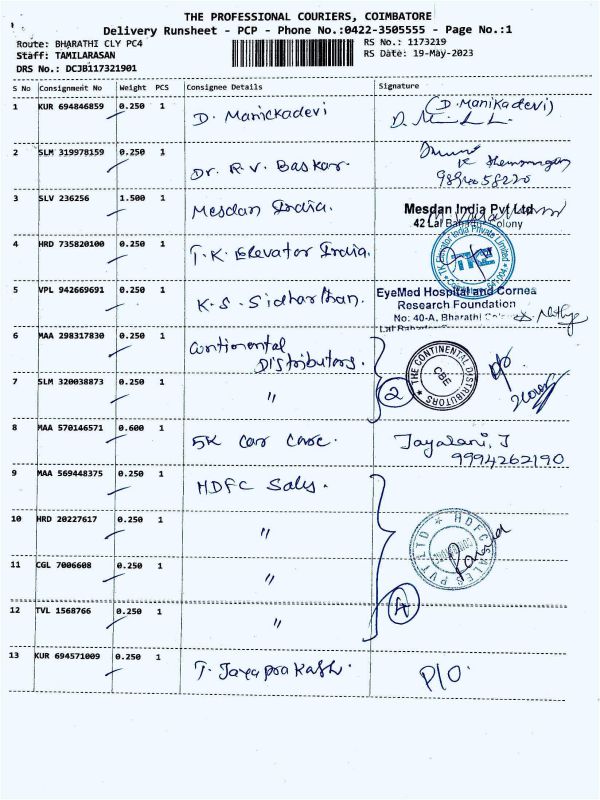 THE PROFESSIONAL COURIERS, COIMBATORE
Delivery Runsheet - PCP - Phone No.:0422-3505555 - Page No.:1
Route: BHARATHI CLY PC4
Staff: TAMILARASAN
DRS No.: DCJB117321901
RS No.: 1173219
RS Date: 19-May-2023
S No Consignment No Weight PCS Consignee Details Signature
1 KUR 694846859 0.250 1 D. Manickadevi (D. Manikadevi)
2 SLM 319978159 0.250 1 Dr. R.V. Baskar.
3 SLV 236256 1.500 1 Mesdan India. Mesdan India Pvt Ltd
42 Lal Bahadur Colony
4 HRD 735820100 0.250 1 T.K. Elevator India. TK Elevator India Private Limited
TKE
5 VPL 942669691 0.250 1 K.S. Sidharthan. EyeMed Hospital and Cornea
Research Foundation
No: 40-A, Bharathi
Lal Bahadur
6 MAA 298317830 0.250 1 Continental
Distributors.
THE CONTINENTAL DISTRIBUTORS
CBE
7 SLM 320038873 0.250 1 " 2
8 MAA 570146571 0.600 1 5K Car Care. Jayalani, J
9994262190
9 MAA 569448375 0.250 1 HDFC Sales.
10 HRD 20227617 0.250 1 " HDFC SALES PVT LTD
11 CGL 7006608 0.250 1 "
12 TVL 1568766 0.250 1 " 4
13 KUR 694571009 0.250 1 T. Jayaprakash. P/O.